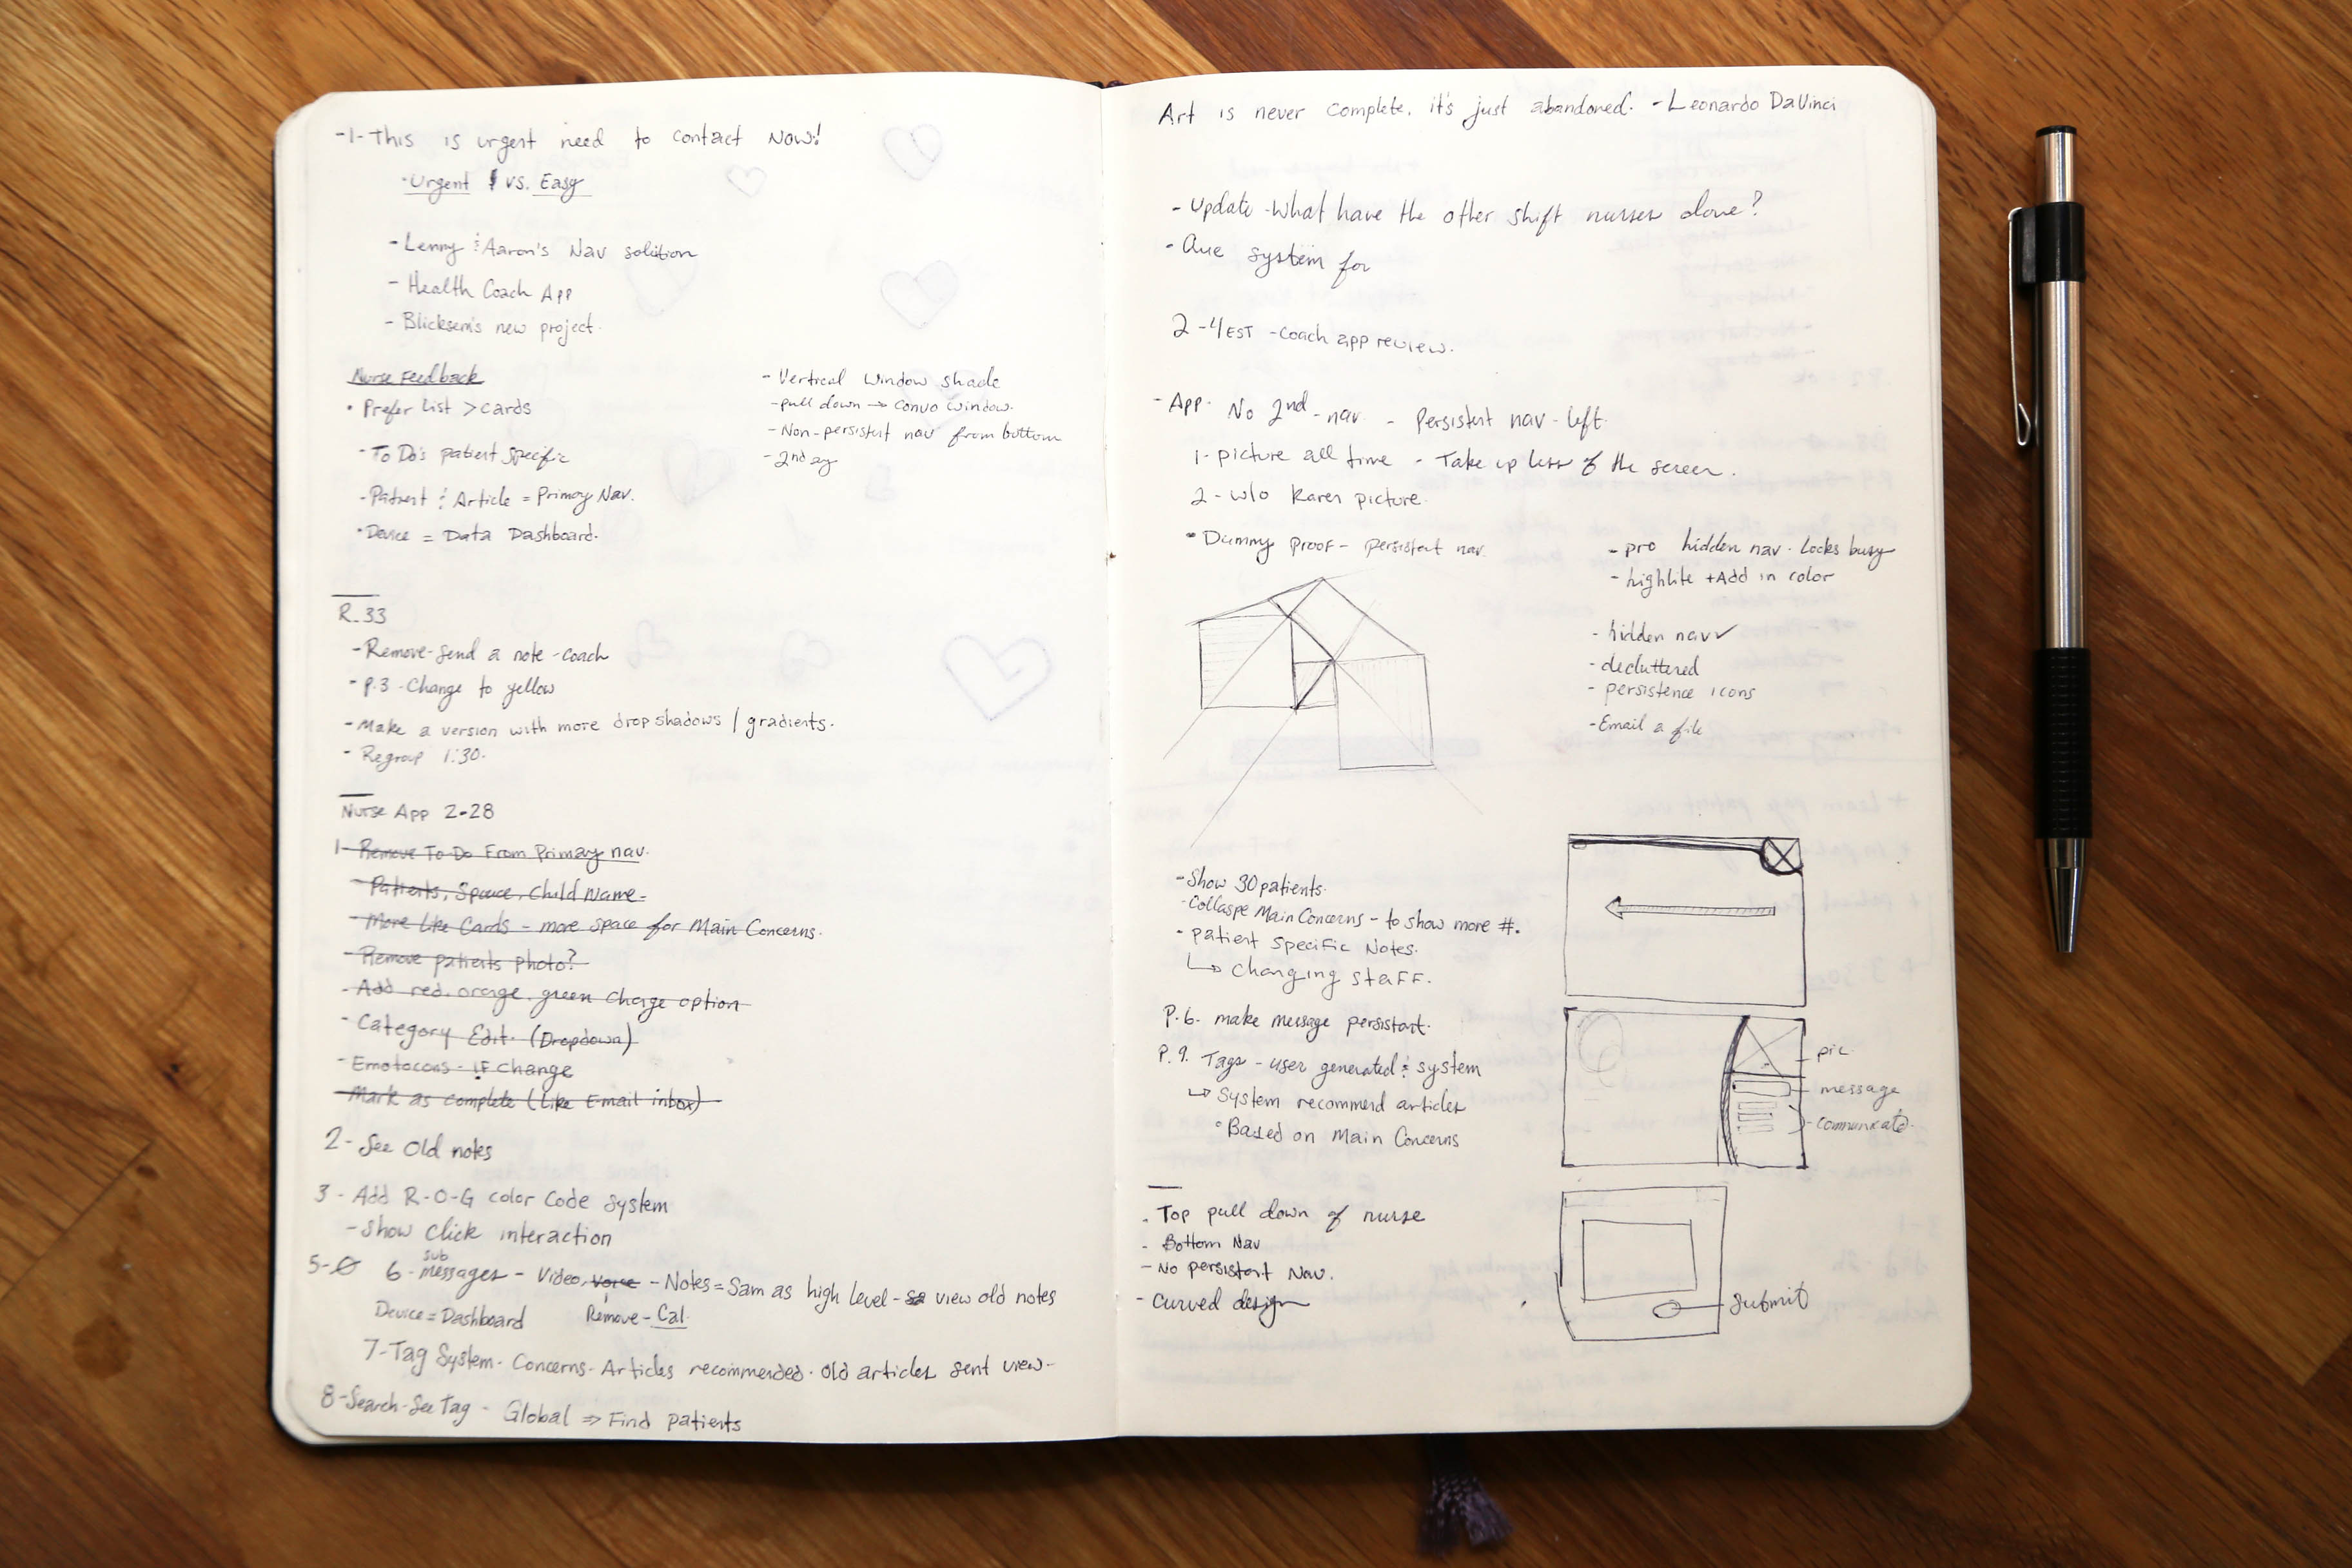 -1- This is urgent need to contact NOW!
• Urgent vs. Easy
- Lenny & Aaron's Nav solution
- Health Coach App
- Blicksem's new project.
Nurse Feedback
• Prefer List > cards
- To Do's patient specific
- Patient & Article = Primary Nav.
• Device = Data Dashboard.
- Vertical window shade
- pull down → convo window.
- Non-persistent nav from bottom
- 2nd ay
R.33
- Remove - Send a note - coach
- P.3 - Change to yellow
- Make a version with more drop shadows / gradients.
- Regroup 1:30.
Nurse App 2-28
1- Remove To Do From Primay nav.
- Patients, Spouce, Child Name -
- More Like Cards - more space for Main Concerns.
- Remove patients photo?
- Add red, orange, green change option
- Category Edit. (Dropdown)
- Emotocons - if change
- Mark as complete (Like Email inbox)
2- See Old notes
3- Add R-O-G color Code System
- Show Click interaction
5-Ø 6- sub messages - Video, Voice - Notes = Sam as high level - view old notes
Device = Dashboard Remove - Cal.
7- Tag System - Concerns - Articles recommended. Old articles sent view -
8- Search - See Tag - Global ⇒ Find patients
Art is never complete, it's just abandoned. - Leonardo DaVinci
- Update - What have the other shift nurses done?
- Que system for
2-4 EST - Coach app review.
- App - No 2nd - nav. - Persistent nav - left.
1- picture all time - Take up less of the screen.
2- w/o Karen picture.
• Dummy Proof - persistent nav.
- pro hidden nav - looks busy
- highlite + Add in color
- hidden nav ✓
- decluttered
- persistence icons
- Email a file
- Show 30 patients.
- Collaspe Main Concerns - to show more #.
- patient specific Notes.
↳ Changing staff.
P.6. make message persistant.
P.9. Tags - user generated & system
↳ System recommend articles
• Based on Main Concerns
pic.
message
communicate.
- Top pull down of nurse
- Bottom Nav
- No persistant Nav.
- curved design
submit